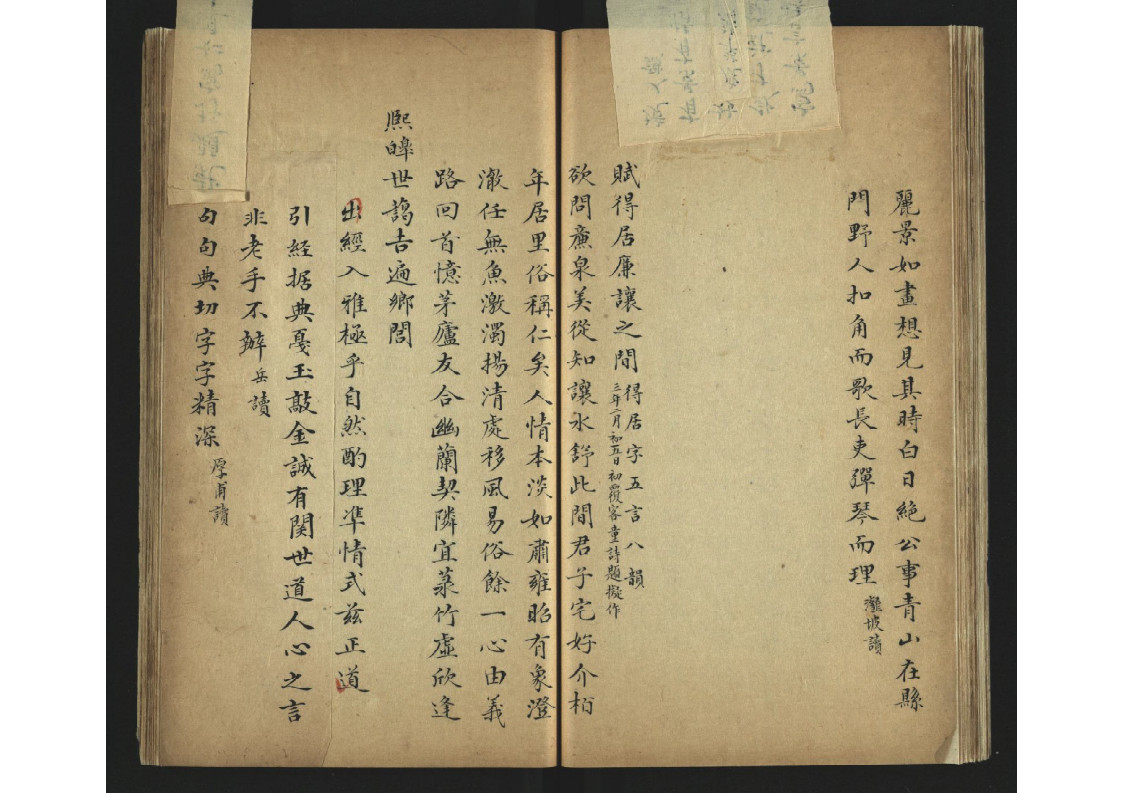 麗景如畫想見其時白日絕公事青山在縣
門野人扣角而歌長吏彈琴而理
坡讀
賦得居廉讓之間
得居字五言八韻
三年二月初五日初覆客童詩題擬作
欲問廉泉美從知讓水舒此間君子宅好介柏
年居里俗稱仁矣人情本淡如肅雍昭有象澄
澈任無魚激濁揚清處移風易俗餘一心由義
路回首憶茅廬友合幽蘭契隣宜菉竹虛欣逢
熙皞世謁吉遍鄉閭
出經入雅極乎自然酌理準情式茲正道
引經据典戛玉敲金誠有関世道人心之言
非老手不辦
岳讀
句句典切字字精深
厚甫讀